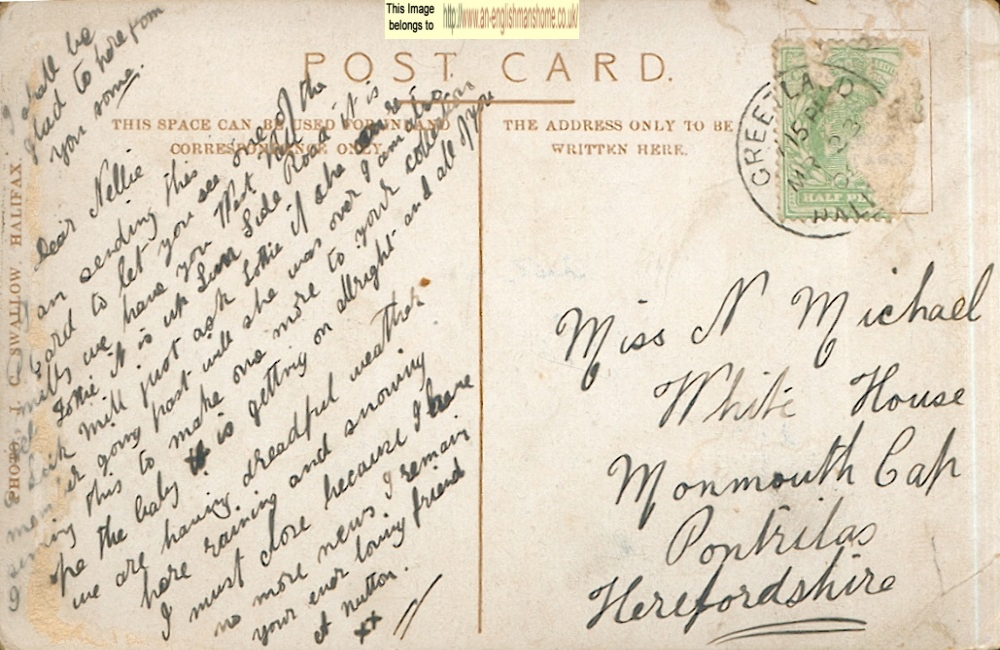 This Image
belongs to
http://www.an-englishmanshome.co.uk/
POST CARD.
THIS SPACE CAN BE USED FOR INLAND
CORRESPONDENCE ONLY.
THE ADDRESS ONLY TO BE
WRITTEN HERE.
GREETLAND
15 PM
MR 23
HALIFAX
HALF PE
PHOTO. J. C. SWALLOW, HALIFAX
I shall be
glad to here from
you some.
Dear Nellie
I am sending this
card to let you see one of the
mills we have you West Vale
Lottie it is up Road it is
Mill just ask Lottie if she
er going past well she was over I am also
sening this to make one more to your collection
ope the baby is getting on allright and all of you
we are having dreadful weather
here raining and snowing
I must close because I have
no more news I remain
your ever loving friend
A Nutton.
xx
Miss N Michael
White House
Monmouth Cap
Pontrilas
Herefordshire